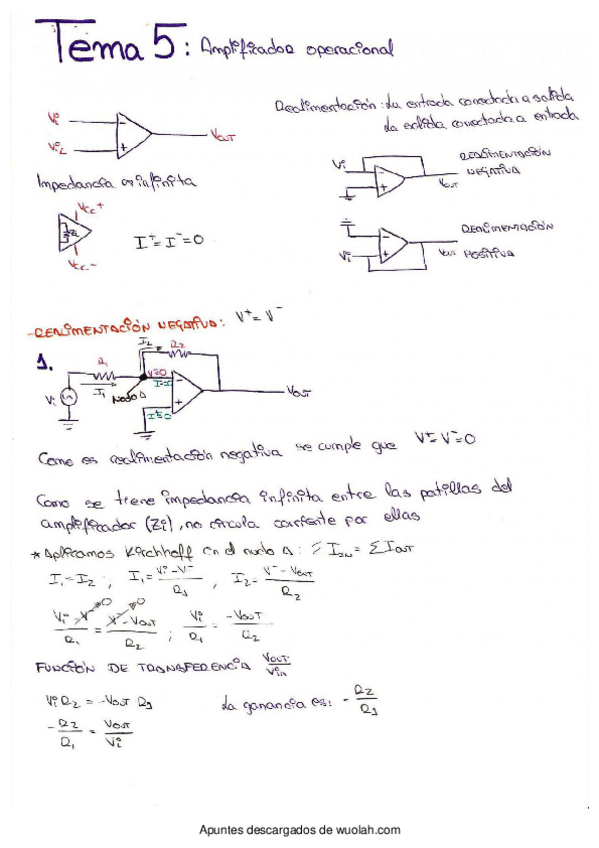 Tema 5: Amplificador operacional
Realimentación: La entrada conectada a salida
La salida conectada a entrada
Vi
Vi2
VOUT
- +
Impedancia ∞ infinita
Vcc+
Zi
Vcc-
I⁺=I⁻=0
Vi
- +
VOUT
REALIMENTACIÓN
NEGATIVA
- +
Vi
VOUT
REALIMENTACIÓN
POSITIVA
-REALIMENTACIÓN NEGATIVA: V⁺=V⁻
1.
I2 R2
R1
V=0
Vi I1 NODO A I=0
I=0
- +
VOUT
Como es realimentación negativa se cumple que V⁺=V⁻=0
Como se tiene impedancia infinita entre las patillas del
amplificador (Zi), no circula corriente por ellas
* Aplicamos Kirchhoff en el nudo A: ΣIIN = ΣIOUT
I1=I2 ; I1 = (Vi-V⁻)/R1 , I2 = (V⁻-VOUT)/R2
(Vi-V⁻)/R1 = (V⁻-VOUT)/R2 ; Vi/R1 = -VOUT/R2
FUNCIÓN DE TRANSFERENCIA VOUT/Vin
Vi R2 = -VOUT R1
La ganancia es: -R2/R1
-R2/R1 = VOUT/Vi
Apuntes descargados de wuolah.com